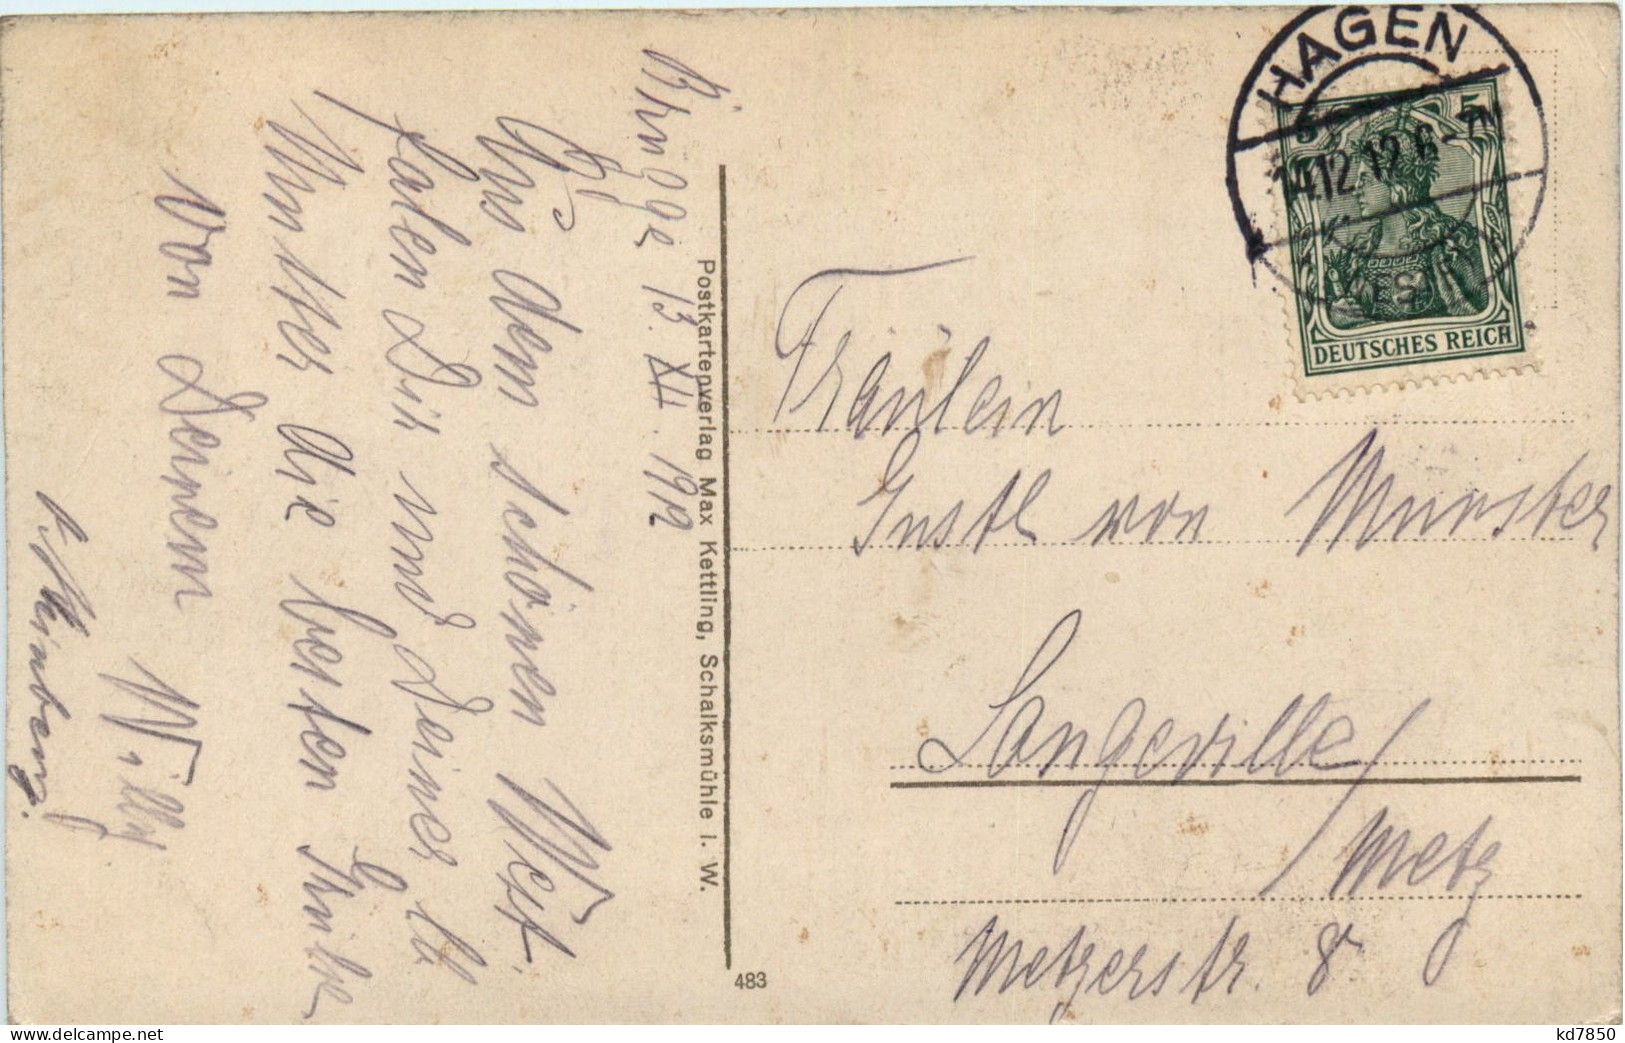 Brügge 13. XII. 1912
Aus dem schönen West-
falen Dir und Deiner lb
Mutter die besten Grüße
von Deinem
Willy
Postkartenverlag Max Kettling, Schalksmühle i. W.
483
HAGEN
14.12.12.6-7N
5 5
DEUTSCHES REICH
Fräulein
Gustl von Münster
Longeville/
/Metz
Metzerstr. 8
kd7850